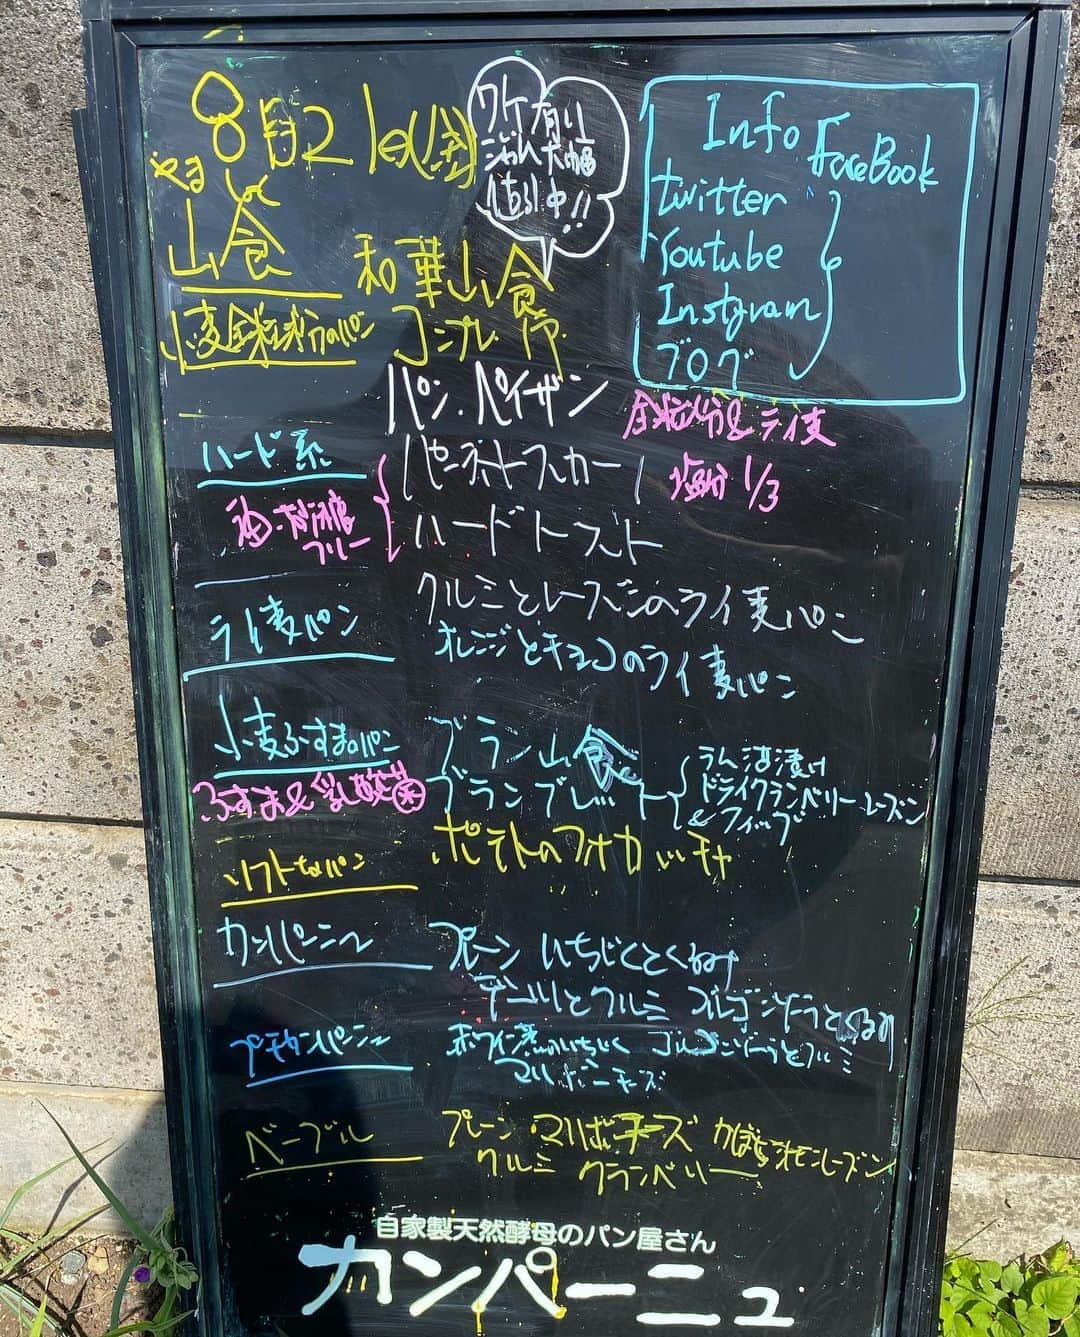 8月21日(金)
ワケ有り
ジャム大幅
値引中!!
Info
FaceBook
twitter
Youtube
Instgram
ブログ
山食
和華山食
小麦全粒粉のパン
コンプレ
パン・ペイザン
全粒粉&ライ麦
ハード系
塩分1/3
フリー
ハードトースト
クルミとレーズンのライ麦パン
ライ麦パン
オレンジとチョコのライ麦パン
小麦ふすまのパン
ブラン山食
ふすま&乳酸菌
ブランブレット
ラム酒漬け
ドライクランベリーレーズン
ソフトなパン
ポテトのフォカッチャ
カンパーニュ
プレーン いちじくとくるみ
とクルミ ゴルゴンゾーラとくるみ
プチカンパーニュ
いちじく ゴルゴンゾーラとクルミ
マリボーチーズ
ベーグル
プレーン マリボーチーズ かぼちゃ レーズン
クルミ クランベリー
自家製天然酵母のパン屋さん
カンパーニュ